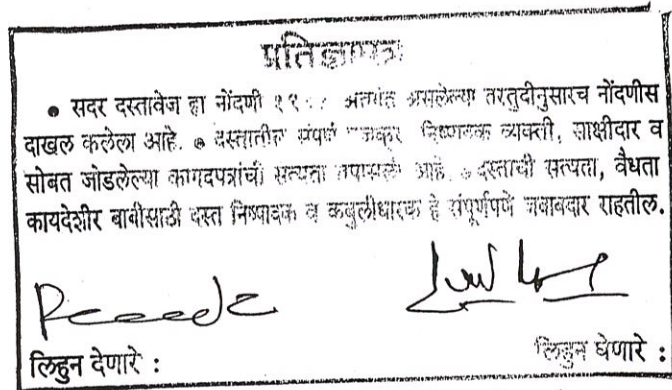 प्रतिज्ञापत्र
● सदर दस्तावेज हा नोंदणी १९०८ अंतर्गत असलेल्या तरतुदीनुसारच नोंदणीस
दाखल कलेला आहे. ● दस्तातील संपर्ण मजकूर निष्पादक व्यक्ती, साक्षीदार व
सोबत जोडलेल्या कागदपत्रांची सत्यता तपासली आहे. ● दस्ताची सत्यता, वैधता
कायदेशीर बाबीसाठी दस्त निष्पादक व कबुलीधारक हे संपूर्णपणे जबाबदार राहतील.
लिहुन देणारे :
लिहुन घेणारे :